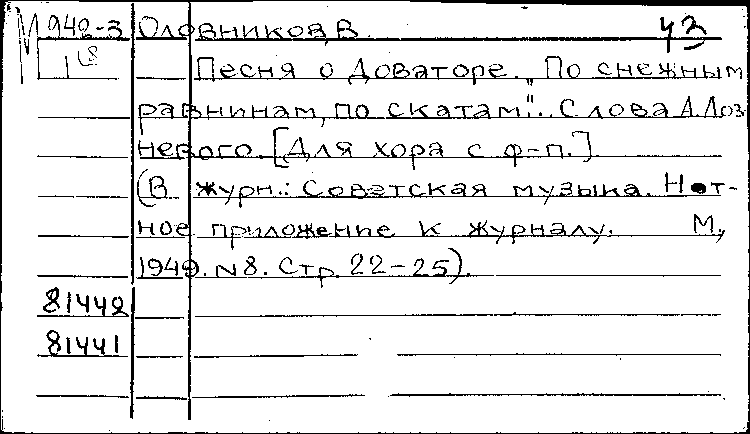 М 942-3 Оловников, В. ч3
1/8 Песня о Доваторе. „По снежным
равнинам, по скатам". Слова А. Лоз-
невого. [Для хора с ф-п.]
(В журн.: Советская музыка. Нот-
ное приложение к журналу. М.,
1949. N8. Стр. 22-25).
81442
81441